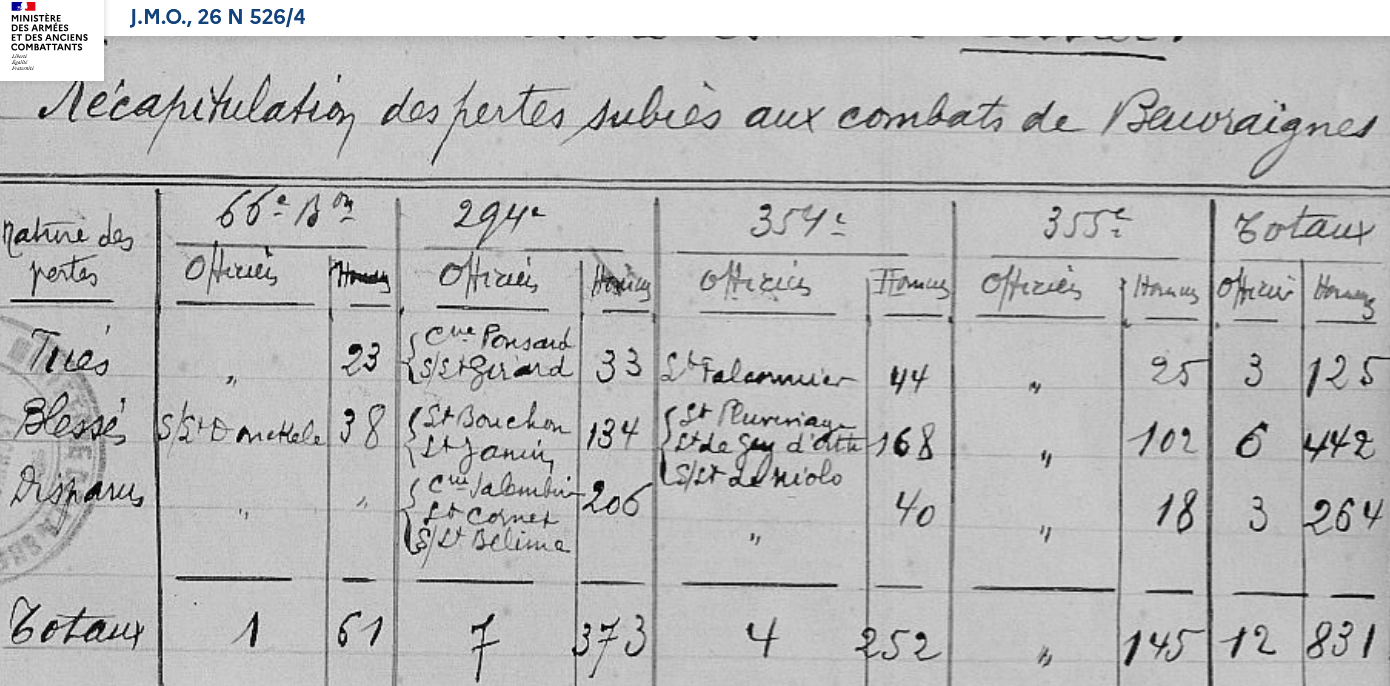 MINISTÈRE
DES ARMÉES
ET DES ANCIENS
COMBATTANTS
Liberté
Égalité
Fraternité
J.M.O., 26 N 526/4
Récapitulation des pertes subies aux combats de Beuvraignes
Nature des pertes 66e Bon 294e 354e 355e Totaux
Officiers Hommes Officiers Hommes Officiers Hommes Officiers Hommes Officiers Hommes
Tués " 23 Cne Ponsard 33 Lt Falconnier 44 " 25 3 125
S/Lt Girard
Blessés S/Lt 38 Lt Bouchon 134 Lt 168 " 102 6 442
Lt Janin Lt de
S/Lt de
Disparus " " Cne 206 " 40 " 18 3 264
Lt Cornet
S/Lt Belime
Totaux 1 61 7 373 4 252 " 145 12 831